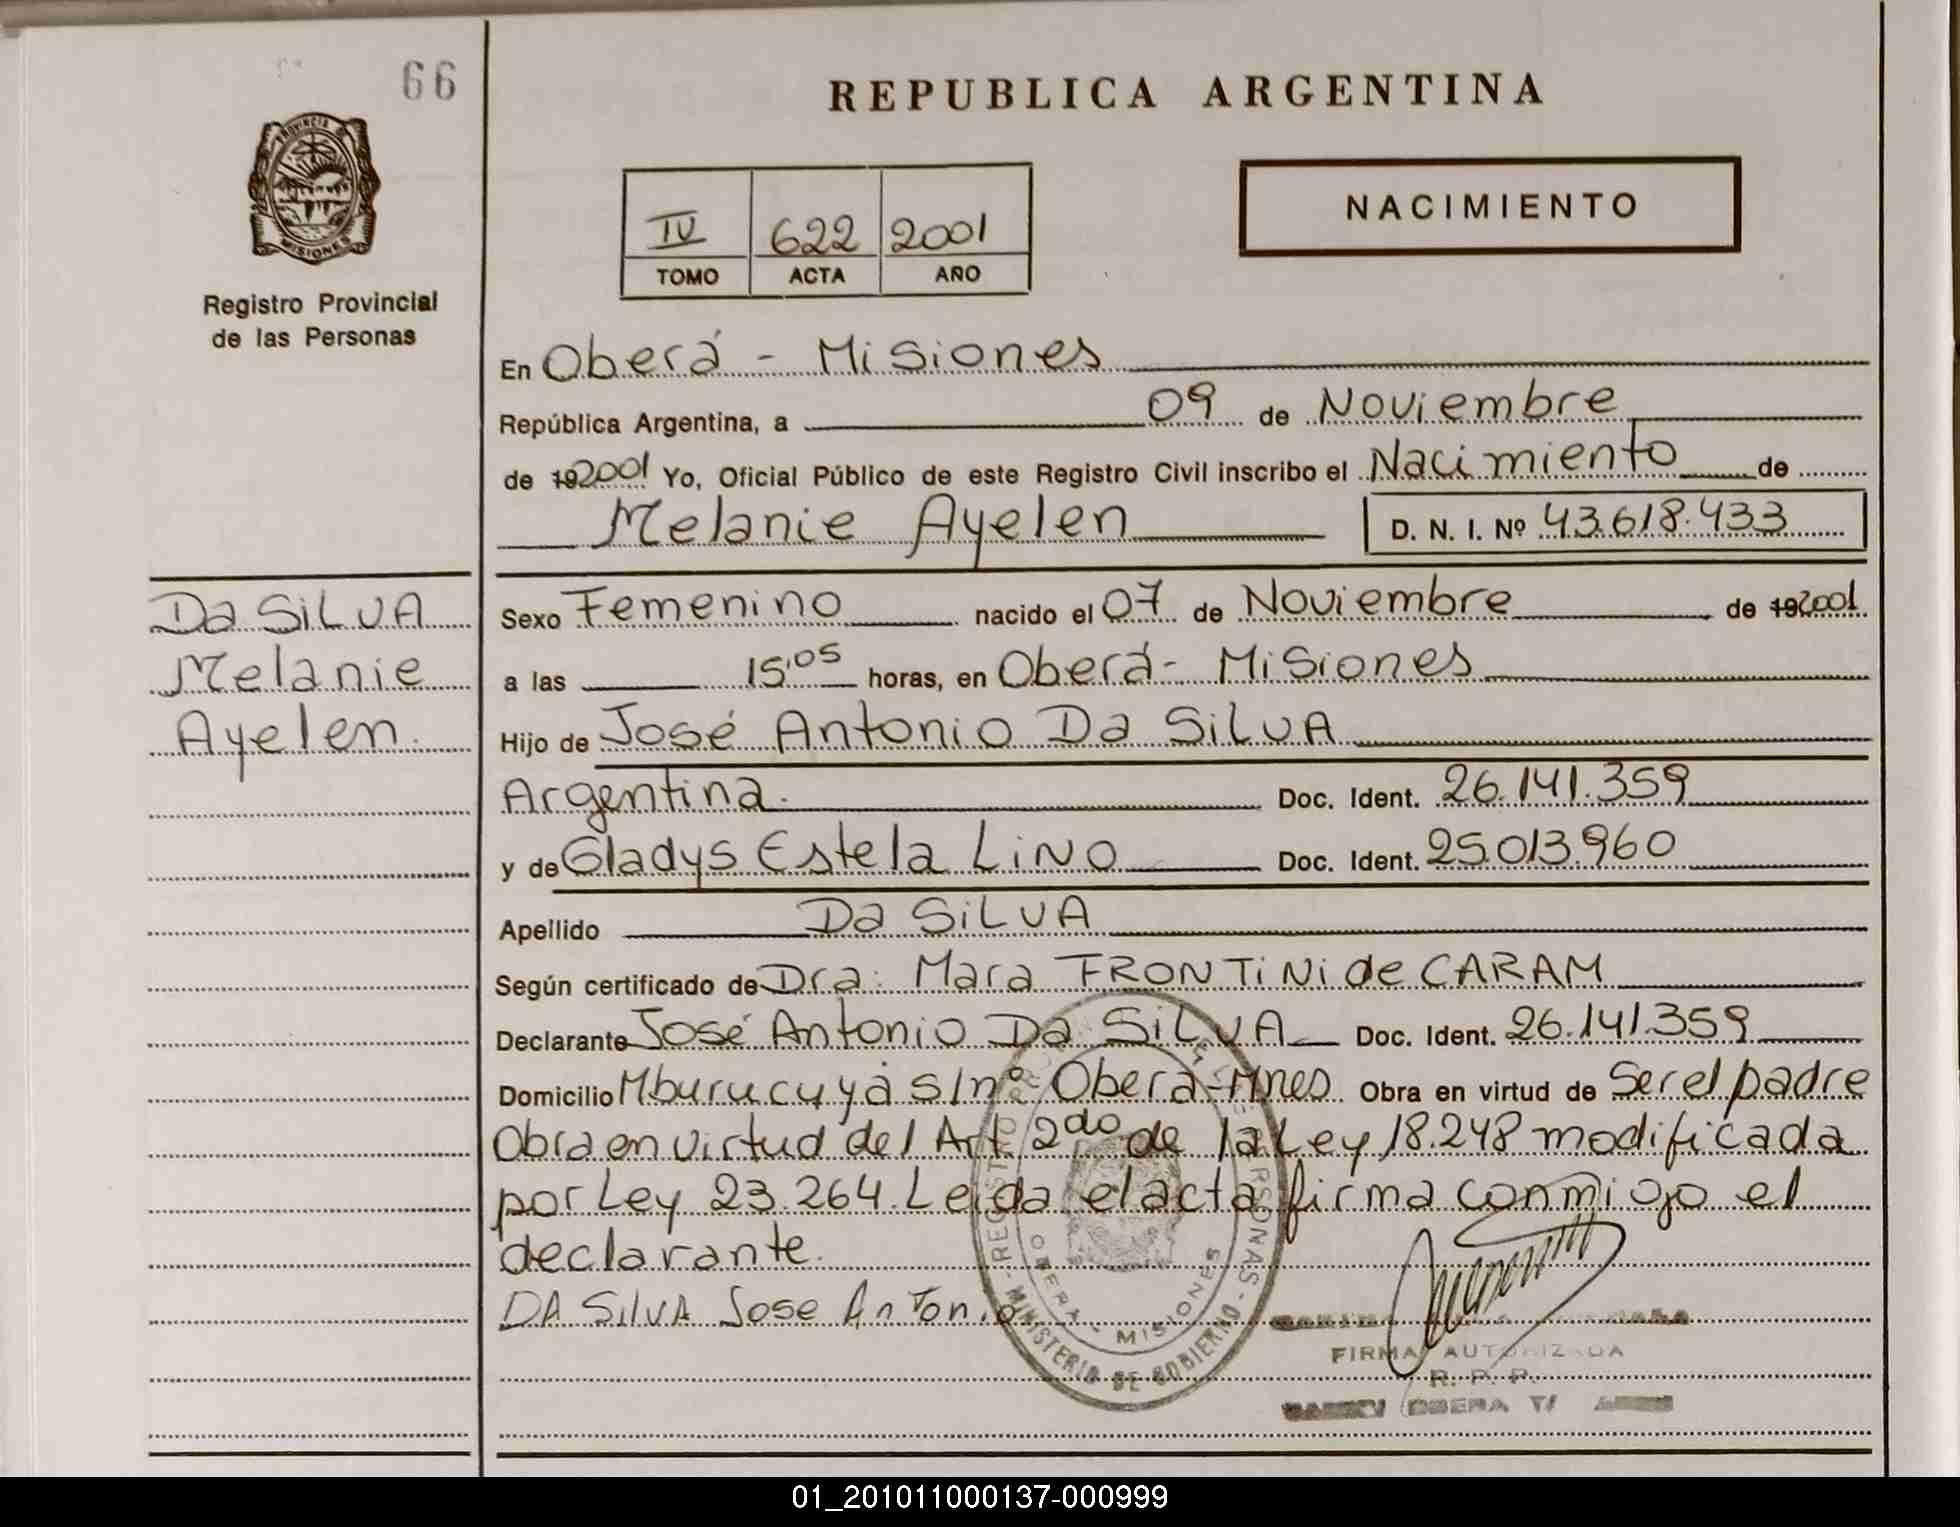 66
REPUBLICA ARGENTINA
PROVINCIA DE
MISIONES
NACIMIENTO
IV 622 2001
TOMO ACTA AÑO
Registro Provincial
de las Personas
En Oberá - Misiones
República Argentina, a 09 de Noviembre
de 192001 Yo, Oficial Público de este Registro Civil inscribo el Nacimiento de
Melanie Ayelen D. N. I. Nº 43.618.433
Da SiLVA
Melanie
Ayelen.
Sexo Femenino nacido el 07 de Noviembre de 192001
a las 15:05 horas, en Oberá - Misiones
Hijo de José Antonio Da SiLVA
Argentina. Doc. Ident. 26.141.359
y de Gladys Estela LiNO Doc. Ident. 25.013.960
Apellido Da SiLVA
Según certificado de Dra. Mara FRONTiNi de CARAM
Declarante José Antonio Da SiLVA Doc. Ident. 26.141.359
Domicilio Mburucuyá s/nº Oberá-Mnes Obra en virtud de Ser el padre
Obra en virtud del Art. 2do de la Ley 18.248 modificada
por Ley 23.264. Leida el acta firma conmigo el
declarante.
DA SilVA Jose Antonio
OBERA - MISIONES
MINISTERIO DE GOBIERNO
FIRMA AUTORIZADA
R. P. P.
OBERA
01_201011000137-000999